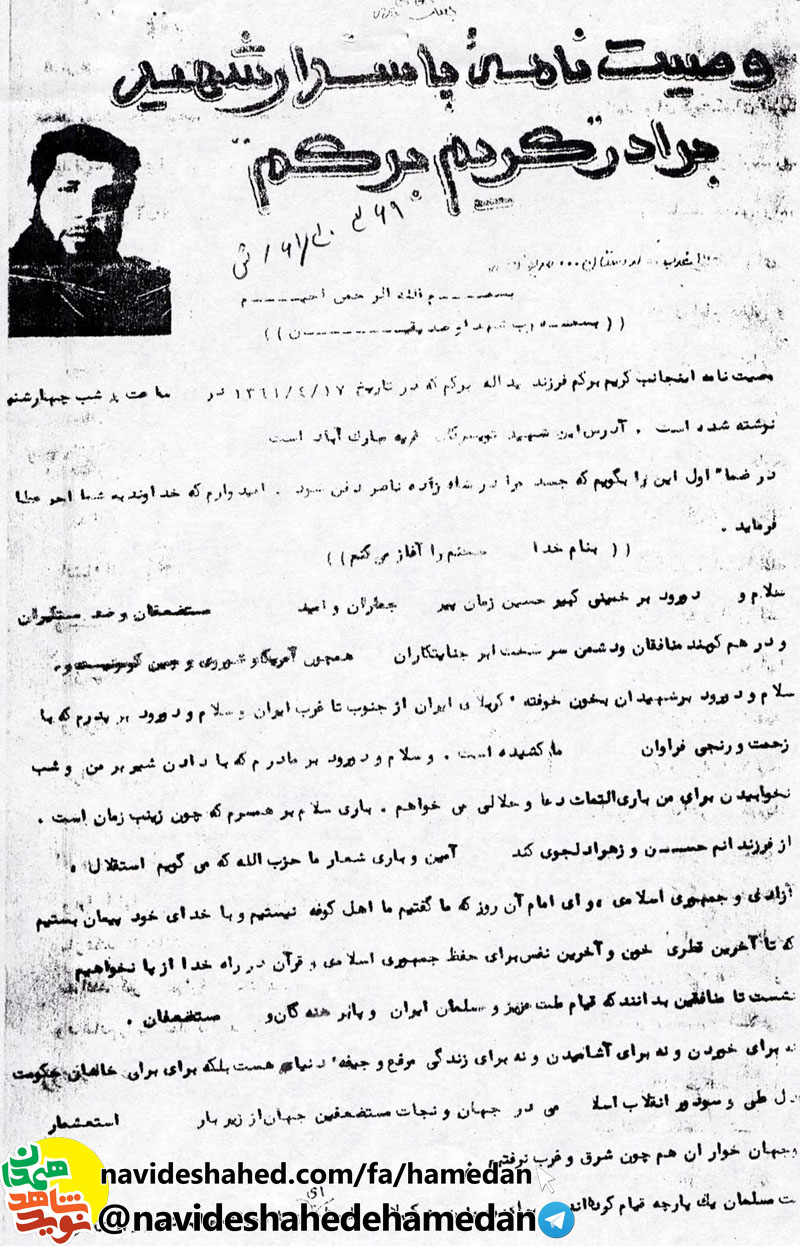 وصیت نامهٔ پاسدار شهید
برادر کریم برکم
بسمـــه رب شهدا و صدیقیـــن
وصیت نامه اینجانب کریم برکم فرزند یداله برکم که در تاریخ ۱۳۶۱/۴/۱۷ در ساعت شب چهارشنبه
نوشته شده است . آدرس این شهید تویسرکان قریه مبارک آباد است
در ضما" اول این را بگویم که جسد مرا در شاه زاده ناصر دفن شود . امیدوارم که خداوند به شما اجر عطا
فرماید .
(( بنام خدا سخنم را آغاز می کنم ))
سلام و دورود بر خمینی کبیر حسین زمان پیر جماران و امید مستضعفان و ضد مستکبران
و در هم کوبنده منافقان و دشمن سر سخت ابر جنایتکاران همچون آمریکا و شوروی و
سلام و دورود بر شهیدان بخون خوفته کربلا ی ایران از جنوب تا غرب ایران و سلام و دورود بر پدرم که با
زحمت و رنجی فراوان ما کشیده است . و سلام و دورود بر مادرم که با دادن شیر بر من و شب
نخوابیدن برای من باری التمات دعا و حلالی می خواهم . باری سلام بر همسرم که چون زینب زمان است .
از فرزند انم حســـن و زهرا دلجوی کند آمین و باری شعار ما حزب الله که می گویم استقلال ،
آزادی و جمهوری اسلامی . و ای امام آن روز که ما گفتیم ما اهل کوفه نیستیم و با خدای خود پیمان بستیم
که تا آخرین قطری خون و آخرین نفس برای حفظ جمهوری اسلامی و قرآن در راه خدا از پا نخواهیم
نشست تا منافقین بدانند که قیام ملت عزیز و مسلمان ایران و پابر هنه گان و مستضعفان .
نه برای خوردن و نه برای آشامیدن و نه برای زندگی مرفع و جیفه دنیای هست بلکه برای برای حکومت
و سودور انقلاب اسلا می در جهان و نجات مستضعفین جهان از زیر بار استعشمار
وجهان خوار ان هم چون شرق و غرب نرفتیم .
ت مسلمان یك پارچه قیام کرده اند
نوید شاهد همدان
navideshahed.com/fa/hamedan
@navideshahedehamedan